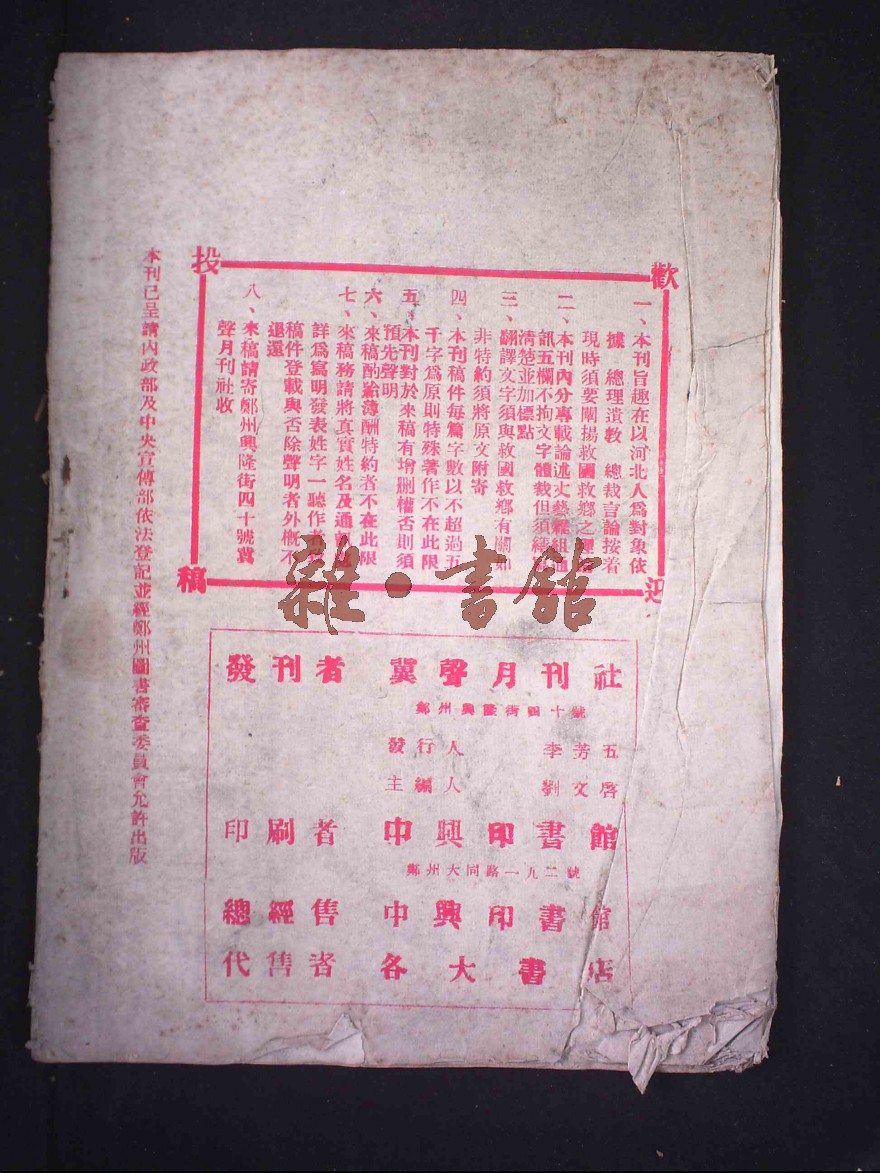 歡迎投稿
一、本刊旨趣在以河北人爲對象依
據 總理遺教 總裁言論按着
現時須要闡揚救國救鄉之
二、本刊內分專載論述文藝雜組通
訊五欄不拘文字體裁但須繕寫
清楚並加標點
三、翻譯文字須與救國救鄉有關如
非特約須將原文附寄
四、本刊稿件每篇字數以不超過五
千字爲原則特殊著作不在此限
五、本刊對於來稿有增删權否則須
預先聲明
六、來稿酌給薄酬特約者不在此限
七、來稿務請將真實姓名及通
詳爲寫明發表姓字一聽作者
稿件登載與否除聲明者外概不
退還
八、來稿請寄鄭州興隆街四十號冀
聲月刊社收
本刊已呈請內政部及中央宣傳部依法登記並經鄭州圖書審查委員會允許出版
發刊者 冀聲月刊社
鄭州興隆街四十號
發行人 李芳五
主編人 劉文啓
印刷者 中興印書館
鄭州大同路一九二號
總經售 中興印書館
代售者 各大書店
雜·書館